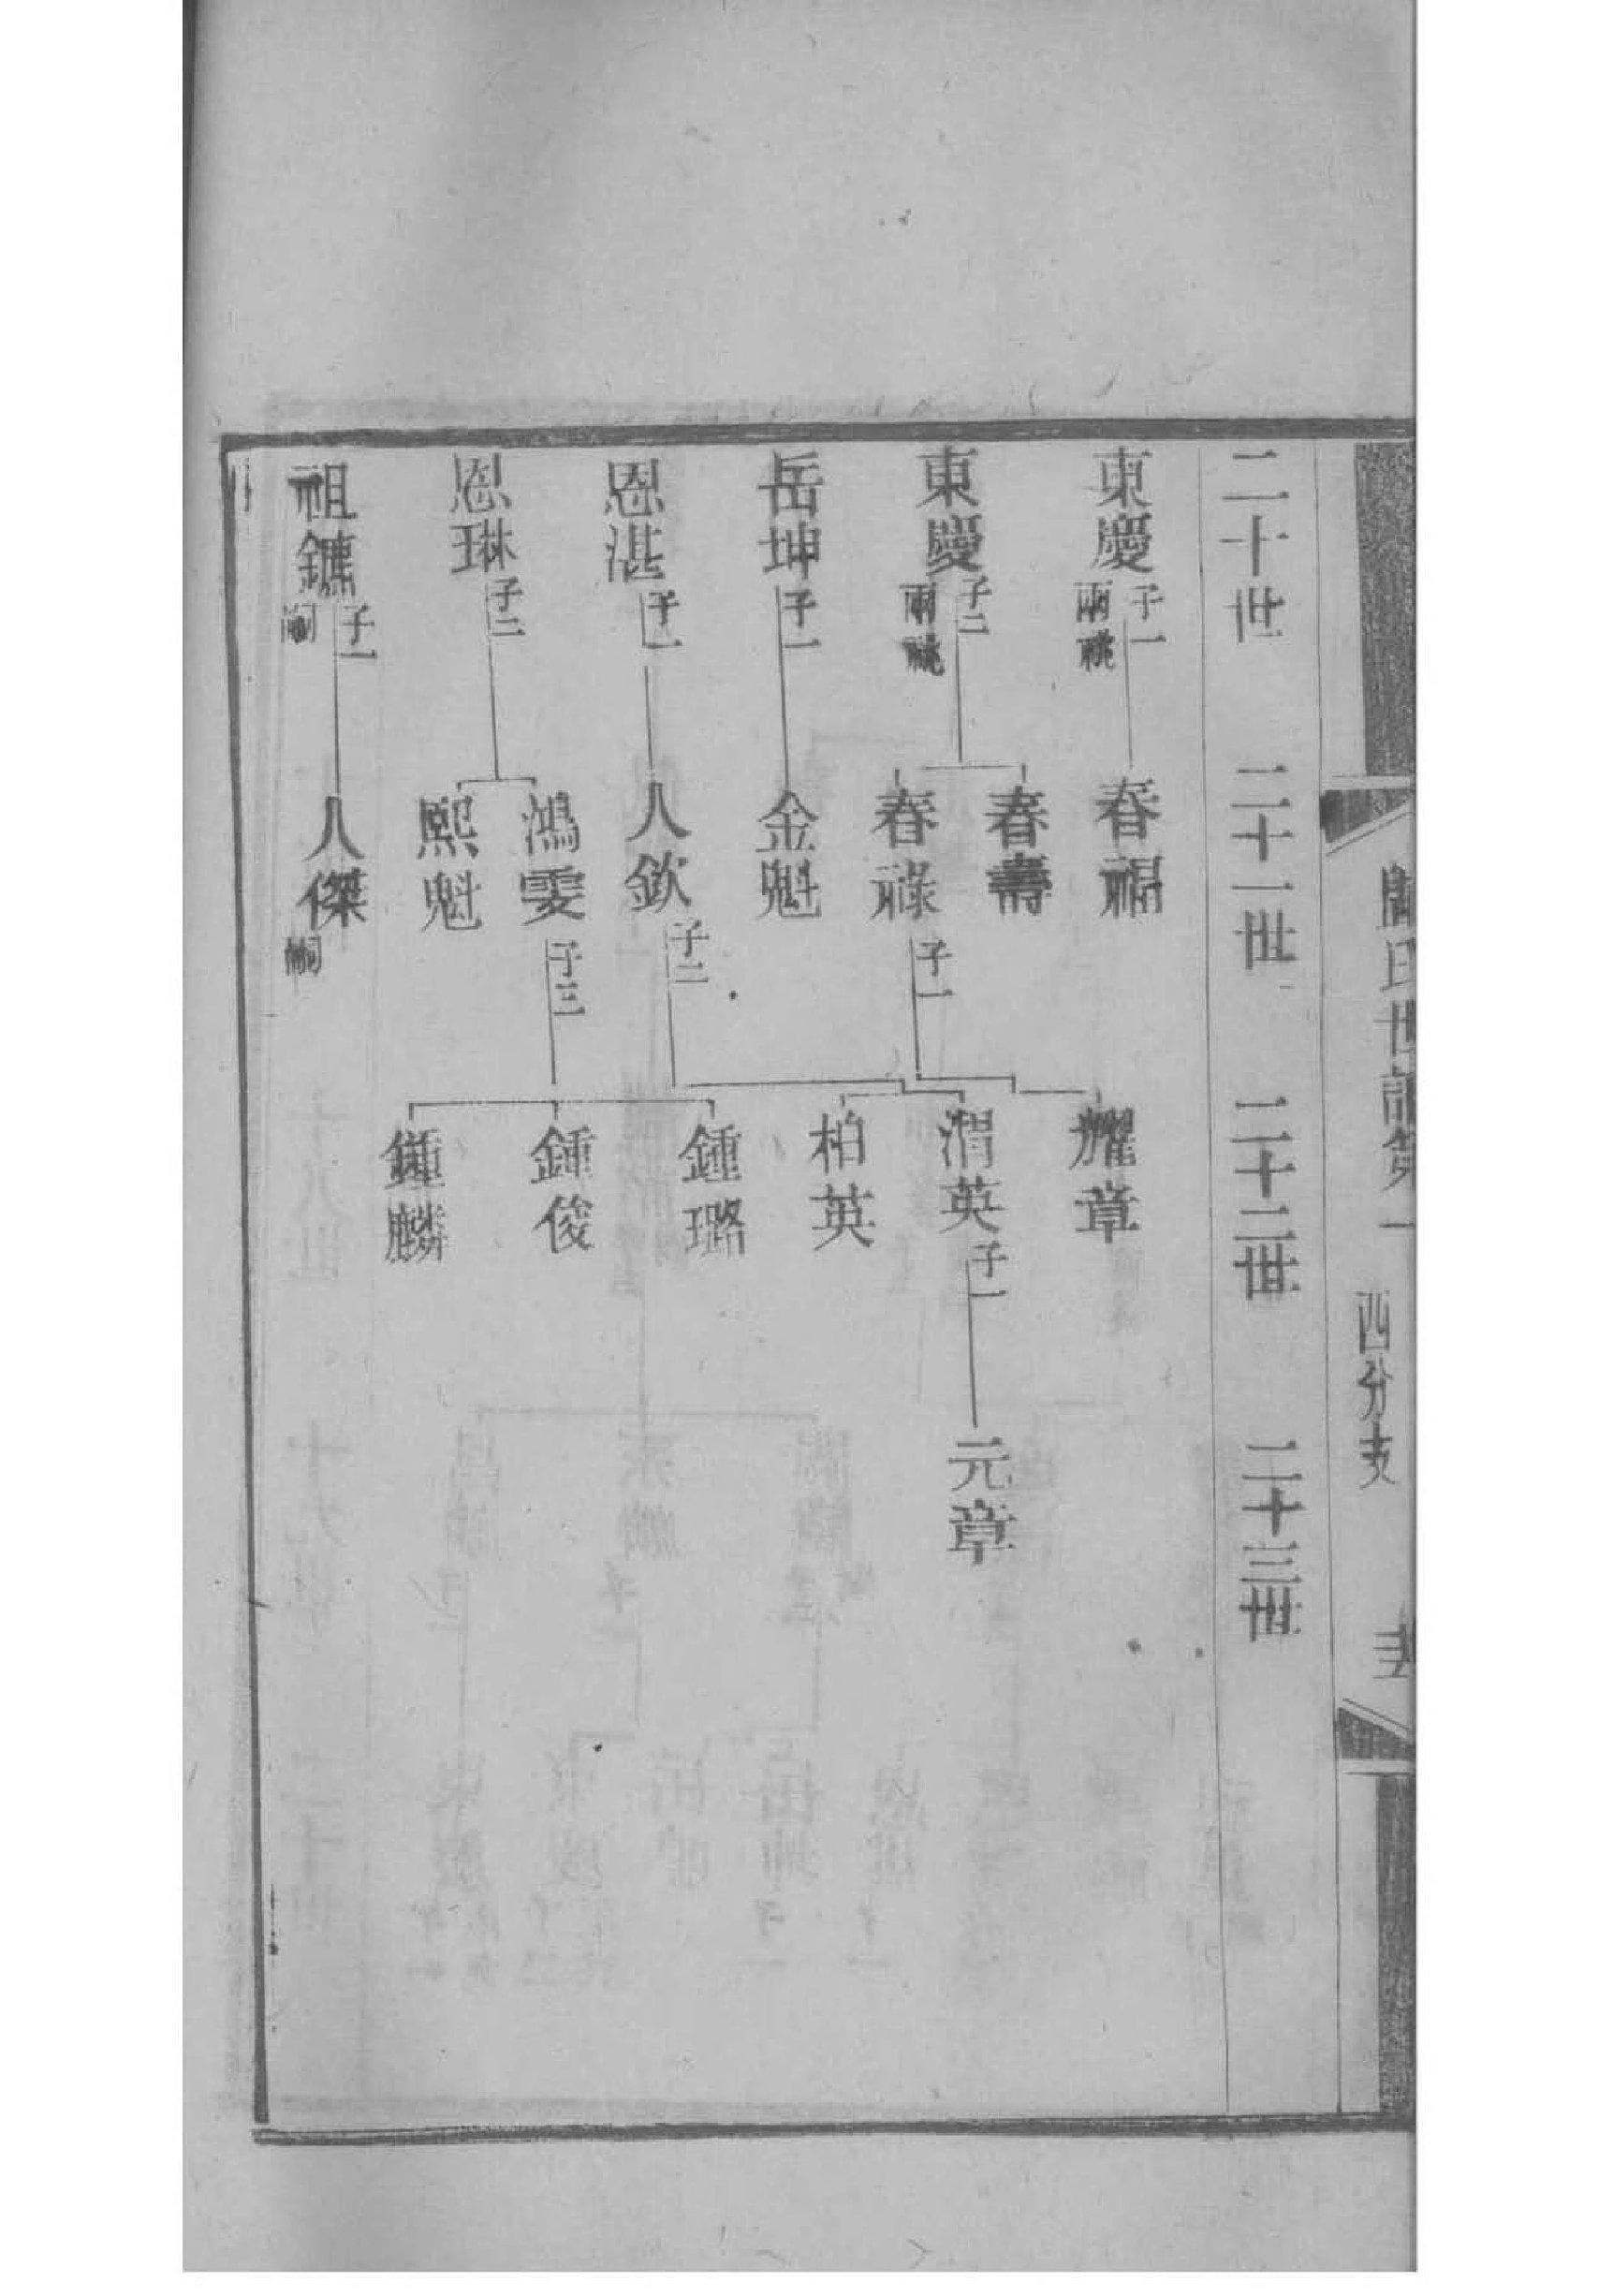 闞氏世譜第一
西分支
二十世
二十一世
二十二世
二十三世
東慶
子一
兩祧
春福
東慶
子二
兩祧
春壽
春祿
子一
耀章
岳坤
子一
金魁
恩湛
子一
人欽
子二
渭英
子一
元章
柏英
恩琳
子二
鴻雯
子三
鍾璐
鍾俊
鍾麟
熙魁
祖鑣
子一
嗣
人傑
嗣